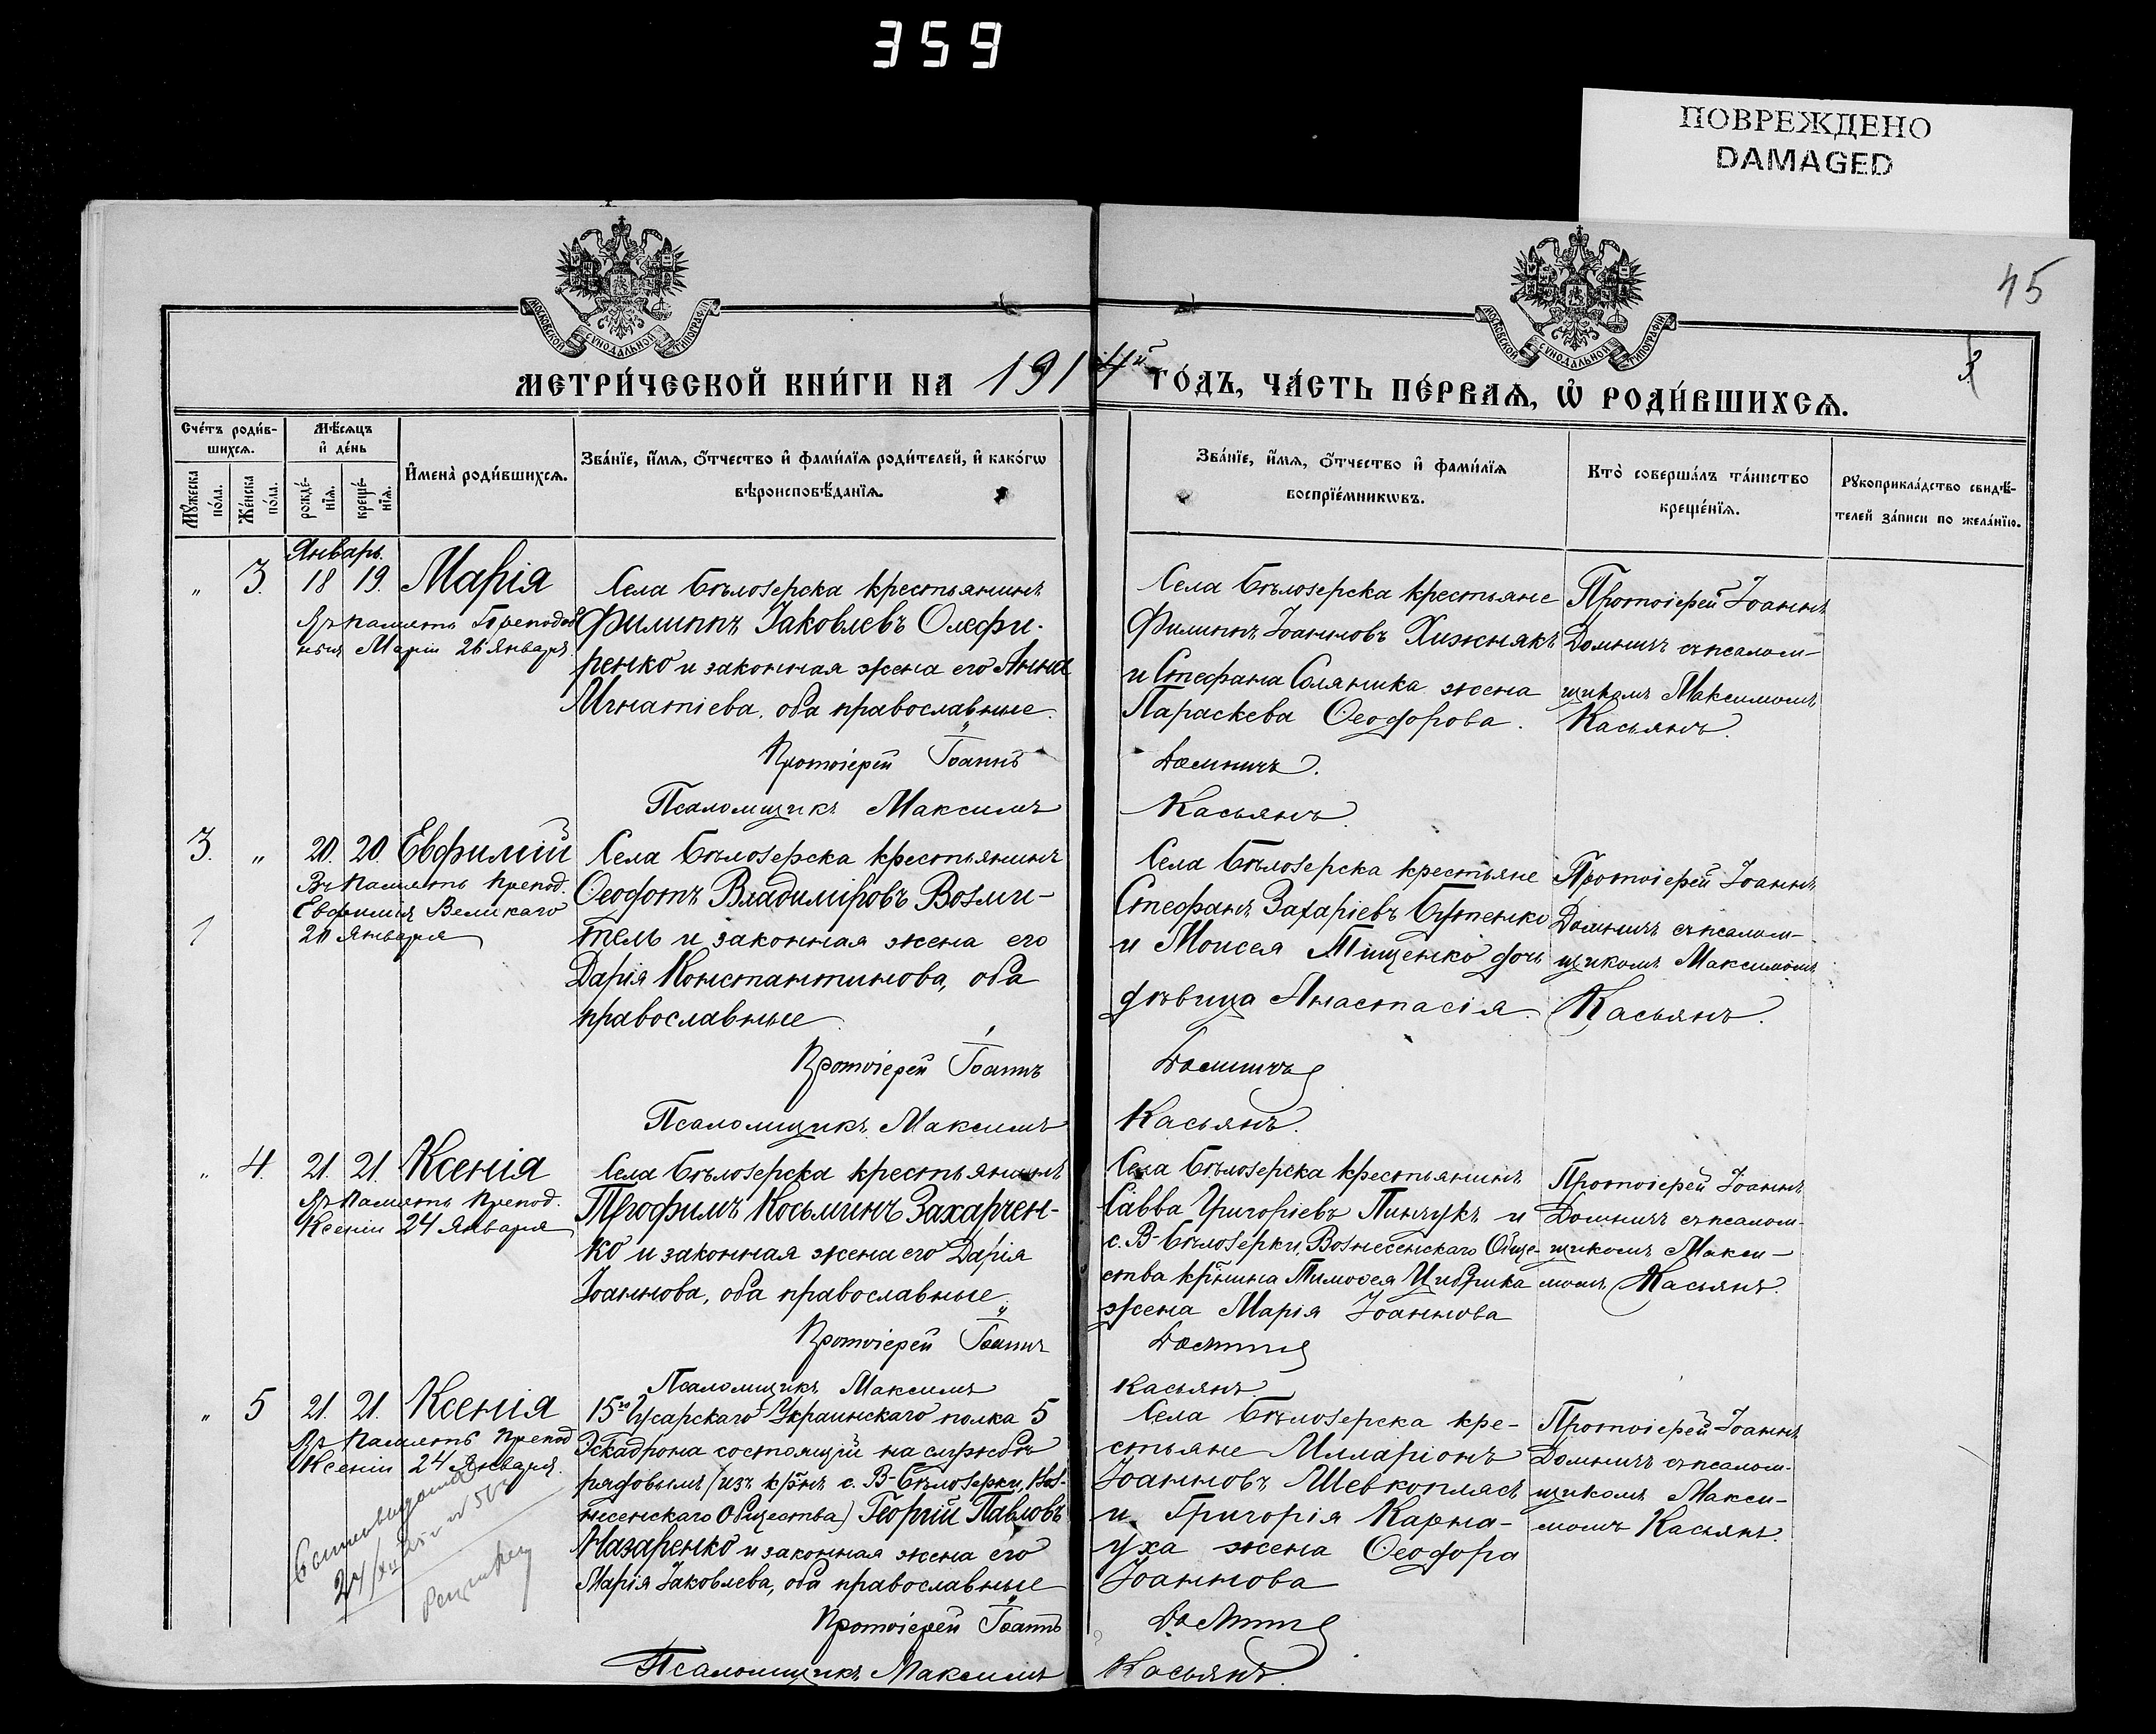 359
ПОВРЕЖДЕНО
DAMAGED
45
МОСКОВСКОЙ СѴНОДАЛЬНОЙ ТИПОГРАФІИ
МОСКОВСКОЙ СѴНОДАЛЬНОЙ ТИПОГРАФІИ
3
МЕТРИ́ЧЕСКОЙ КНИ́ГИ НА 1914й ГО́ДЪ, ЧА́СТЬ ПЕ́РВАѦ, Ѡ҆ РОДИ́ВШИХСѦ.
Сче́тъ роди́в-
шихсѧ.
Мѣ́сѧцъ
и҆ де́нь
И҆мена̀ роди́вшихсѧ.
Зва́нїе, и҆́мѧ, ѻ҆́тчество и҆ фами́лїѧ роди́телей, и҆ како́гѡ
вѣроисповѣ́данїѧ.
Мꙋ́жеска
по́ла.
Же́нска
по́ла.
рожде́-
нїѧ.
креще́-
нїѧ.
Зва́нїе, и҆́мѧ, ѻ҆́тчество и҆ фами́лїѧ
воспрїе́мникѡвъ.
Кто̀ соверша́лъ та́инство
креще́нїѧ.
Рꙋкоприкла́дство свидѣ́-
телей за́писи по жела́нїю.
Январь.
" 3. 18 19. Марія
Въ память Преподоб
ныя Маріи 26 Января
Села Бѣлозерска крестьянинъ
Филиппъ Іаковлевъ Олефи-
ренко и законная жена его Анна
Игнатіева, оба православные.
Протоіерей Іоаннъ
Псаломщикъ Максимъ
Села Бѣлозерска крестьяне
Филиппъ Іоанновъ Хижнякъ
и Стефана Соляника жена
Параскева Ѳеодорова.
Домничъ.
Касьянъ.
Протоіерей Іоаннъ
Домничъ съ псалом-
щикомъ Максимомъ
Касьянъ.
3. " 20. 20. Евфимій
Въ память Препод.
Евфимія Великаго
20 Января
1
Села Бѣлозерска крестьянинъ
Ѳеодотъ Владиміровъ Возми-
тель и законная жена его
Дарія Константинова, оба
православные
Протоіерей Іоаннъ
Псаломщикъ Максимъ
Села Бѣлозерска крестьяне
Стефанъ Захаріевъ Бутенко
и Моисея Тищенко дочь
дѣвица Анастасія.
Домничъ
Касьянъ.
Протоіерей Іоаннъ
Домничъ съ псалом-
щикомъ Максимомъ
Касьянъ.
" 4. 21. 21. Ксенія
Въ память Препод.
Ксеніи 24 Января
Села Бѣлозерска крестьянинъ
Трофимъ Косьминъ Захарчен-
ко и законная жена его Дарія
Іоаннова, оба православные.
Протоіерей Іоаннъ
Псаломщикъ Максимъ
Села Бѣлозерска крестьянинъ
Савва Григоріевъ Пинчукъ и
с. В-Бѣлозерки, Вознесенскаго Обще-
ства кр̃нина Тимоѳея Цибрика
жена Марія Іоаннова
Домничъ
Касьянъ.
Протоіерей Іоаннъ
Домничъ съ псалом-
щикомъ Макси-
момъ Касьянъ.
" 5 21. 21. Ксенія
Въ память Препод
Ксеніи 24 Января.
15го Гусарскаго Украинскаго полка 5
Эскадрона состоящій на службѣ
рядовымъ (изъ кр̃нъ с. В-Бѣлозерки, Воз-
несенскаго Общества) Георгій Павловъ
Назаренко и законная жена его
Марія Іаковлева, оба православные
Протоіерей Іоаннъ
Псаломщикъ Максимъ
Села Бѣлозерска кре-
стьяне Илларіонъ
Іоанновъ Шевкоплясъ
и Григорія Карна-
уха жена Ѳеодора
Іоаннова
Домничъ
Касьянъ.
Протоіерей Іоаннъ
Домничъ съ псалом-
щикомъ Макси-
момъ Касьянъ.